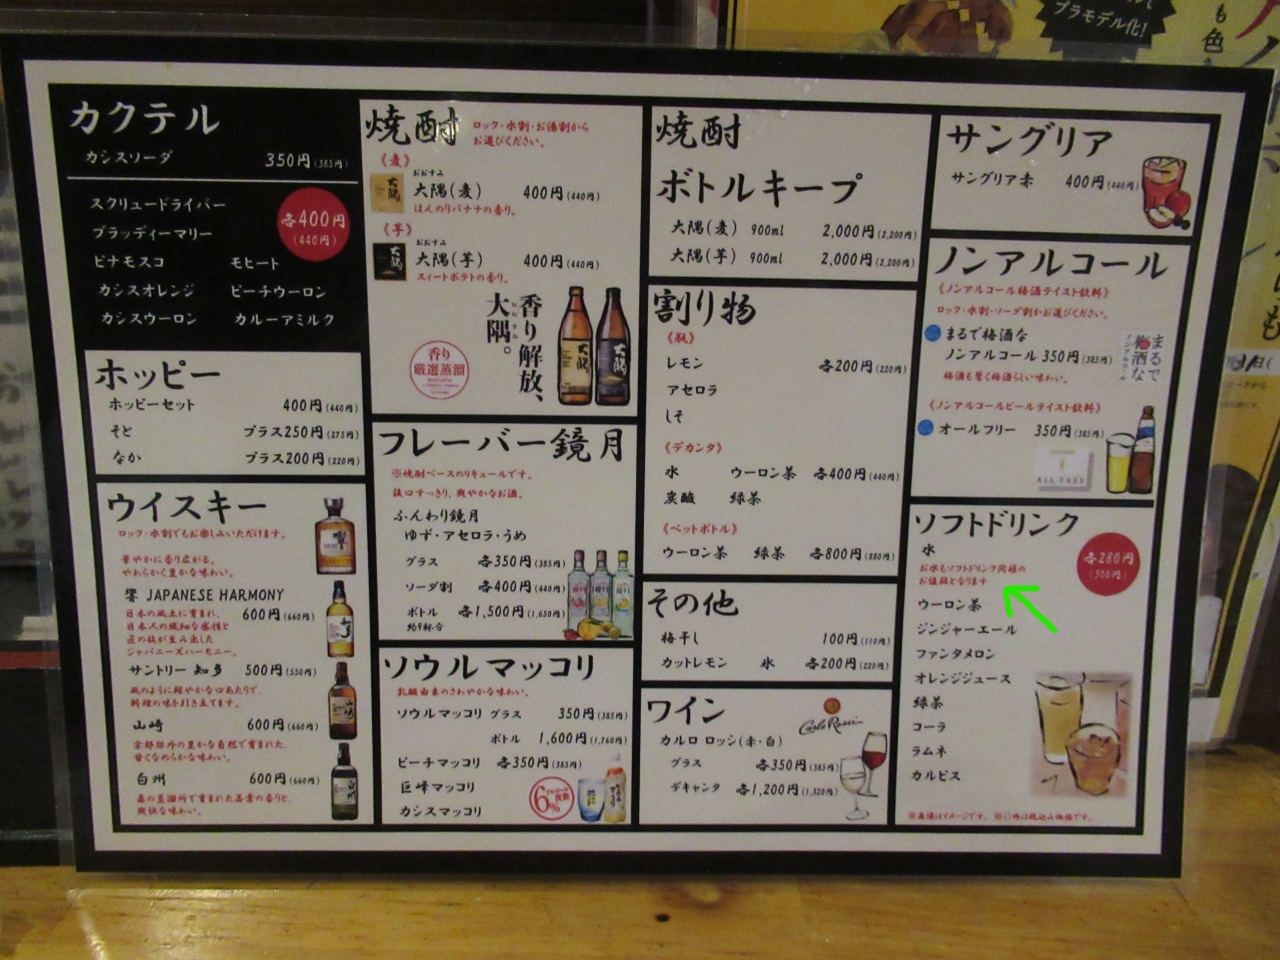 カクテル
カシスソーダ 350円(385円)
スクリュードライバー
ブラッディーマリー
各400円
(440円)
ピナモスコ モヒート
カシスオレンジ ピーチウーロン
カシスウーロン カルーアミルク
ホッピー
ホッピーセット 400円(440円)
そと プラス250円(275円)
なか プラス200円(220円)
ウイスキー
ロック・水割でもお楽しみいただけます。
華やかに香り広がる。
やわらかく豊かな味わい。
響 JAPANESE HARMONY
600円(660円)
日本の風土に育まれ、
日本人の繊細な感性と
匠の技が生み出した
ジャパニーズハーモニー。
サントリー 知多 500円(550円)
風のように軽やかな口あたりで、
料理の味を引き立てます。
山崎 600円(660円)
京都郊外の豊かな自然で育まれた、
甘くなめらかな味わい。
白州 600円(660円)
森の蒸溜所で育まれた若葉の香りと、
爽快な味わい。
焼酎 ロック・水割・お湯割から
お選びください。
《麦》
おおすみ
大隅(麦) 400円(440円)
ほんのりバナナの香り。
《芋》
おおすみ
大隅(芋) 400円(440円)
スイートポテトの香り。
香り解放、
大隅。
香り
厳選蒸溜
フレーバー鏡月
※焼酎ベースのリキュールです。
後口すっきり、爽やかなお酒。
ふんわり鏡月
ゆず・アセロラ・うめ
グラス 各350円(385円)
ソーダ割 各400円(440円)
ボトル 各1,500円(1,650円)
約9杯分
ソウルマッコリ
乳酸由来のさわやかな味わい。
ソウルマッコリ グラス 350円(385円)
ボトル 1,600円(1,760円)
ピーチマッコリ 各350円(385円)
巨峰マッコリ
カシスマッコリ
アルコール度数
6%
焼酎
ボトルキープ
大隅(麦) 900ml 2,000円(2,200円)
大隅(芋) 900ml 2,000円(2,200円)
割り物
《瓶》
レモン 各200円(220円)
アセロラ
しそ
《デカンタ》
水 ウーロン茶 各400円(440円)
炭酸 緑茶
《ペットボトル》
ウーロン茶 緑茶 各800円(880円)
その他
梅干し 100円(110円)
カットレモン 氷 各200円(220円)
ワイン
Carlo Rossi
カルロ ロッシ(赤・白)
グラス 各350円(385円)
デキャンタ 各1,200円(1,320円)
サングリア
サングリア赤 400円(440円)
ノンアルコール
《ノンアルコール梅酒テイスト飲料》
ロック・水割・ソーダ割からお選びください。
まるで梅酒な
ノンアルコール 350円(385円)
梅酒も驚く梅酒らしい味わい。
まるで
梅酒な
ノンアルコール
《ノンアルコールビールテイスト飲料》
オールフリー 350円(385円)
ALL-FREE
ソフトドリンク
各280円
(308円)
水
お水もソフトドリンク同様の
お値段となります
ウーロン茶
ジンジャーエール
ファンタメロン
オレンジジュース
緑茶
コーラ
ラムネ
カルピス
※画像はイメージです。 ※( )内は税込み価格です。
プラモデル化!
も色